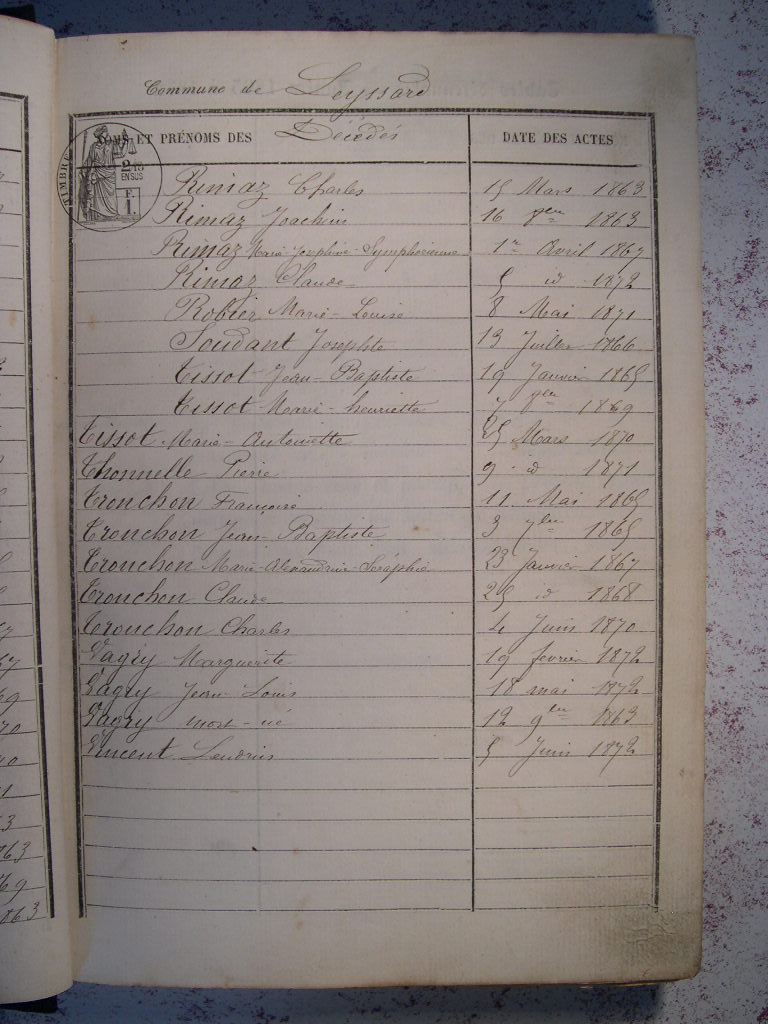 Commune de Leyssard
NOMS ET PRÉNOMS DES Décédés DATE DES ACTES
TIMBRE
2/10
EN SUS
F.
1.
Rimaz Charles 15 Mars 1863
Rimaz Joachim 16 1863
Rimaz Marie Joséphine-Symphorienne 1er Avril 1867
Rimaz Claude 5 id 1872
Robier Marie-Louise 8 Mai 1871
Soudant Josephte 13 Juillet 1866
Tissot Jean-Baptiste 19 Janvier 1865
Tissot Marie-henriette 7 1869
Tissot Marie-Antoinette 25 Mars 1870
Thonnelle Pierre 9 id 1871
Tronchon Françoise 11 Mai 1865
Tronchon Jean-Baptiste 3 7bre 1865
Tronchon Marie-Alexandrine-Séraphie 23 Janvier 1867
Tronchon Claude 25 id 1868
Tronchon Charles 4 Juin 1870
Vagry Marguerite 19 fevrier 1872
Vagry Jean-Louis 18 mai 1872
Vagry mort-né 12 9bre 1863
Vincent 5 Juin 1872